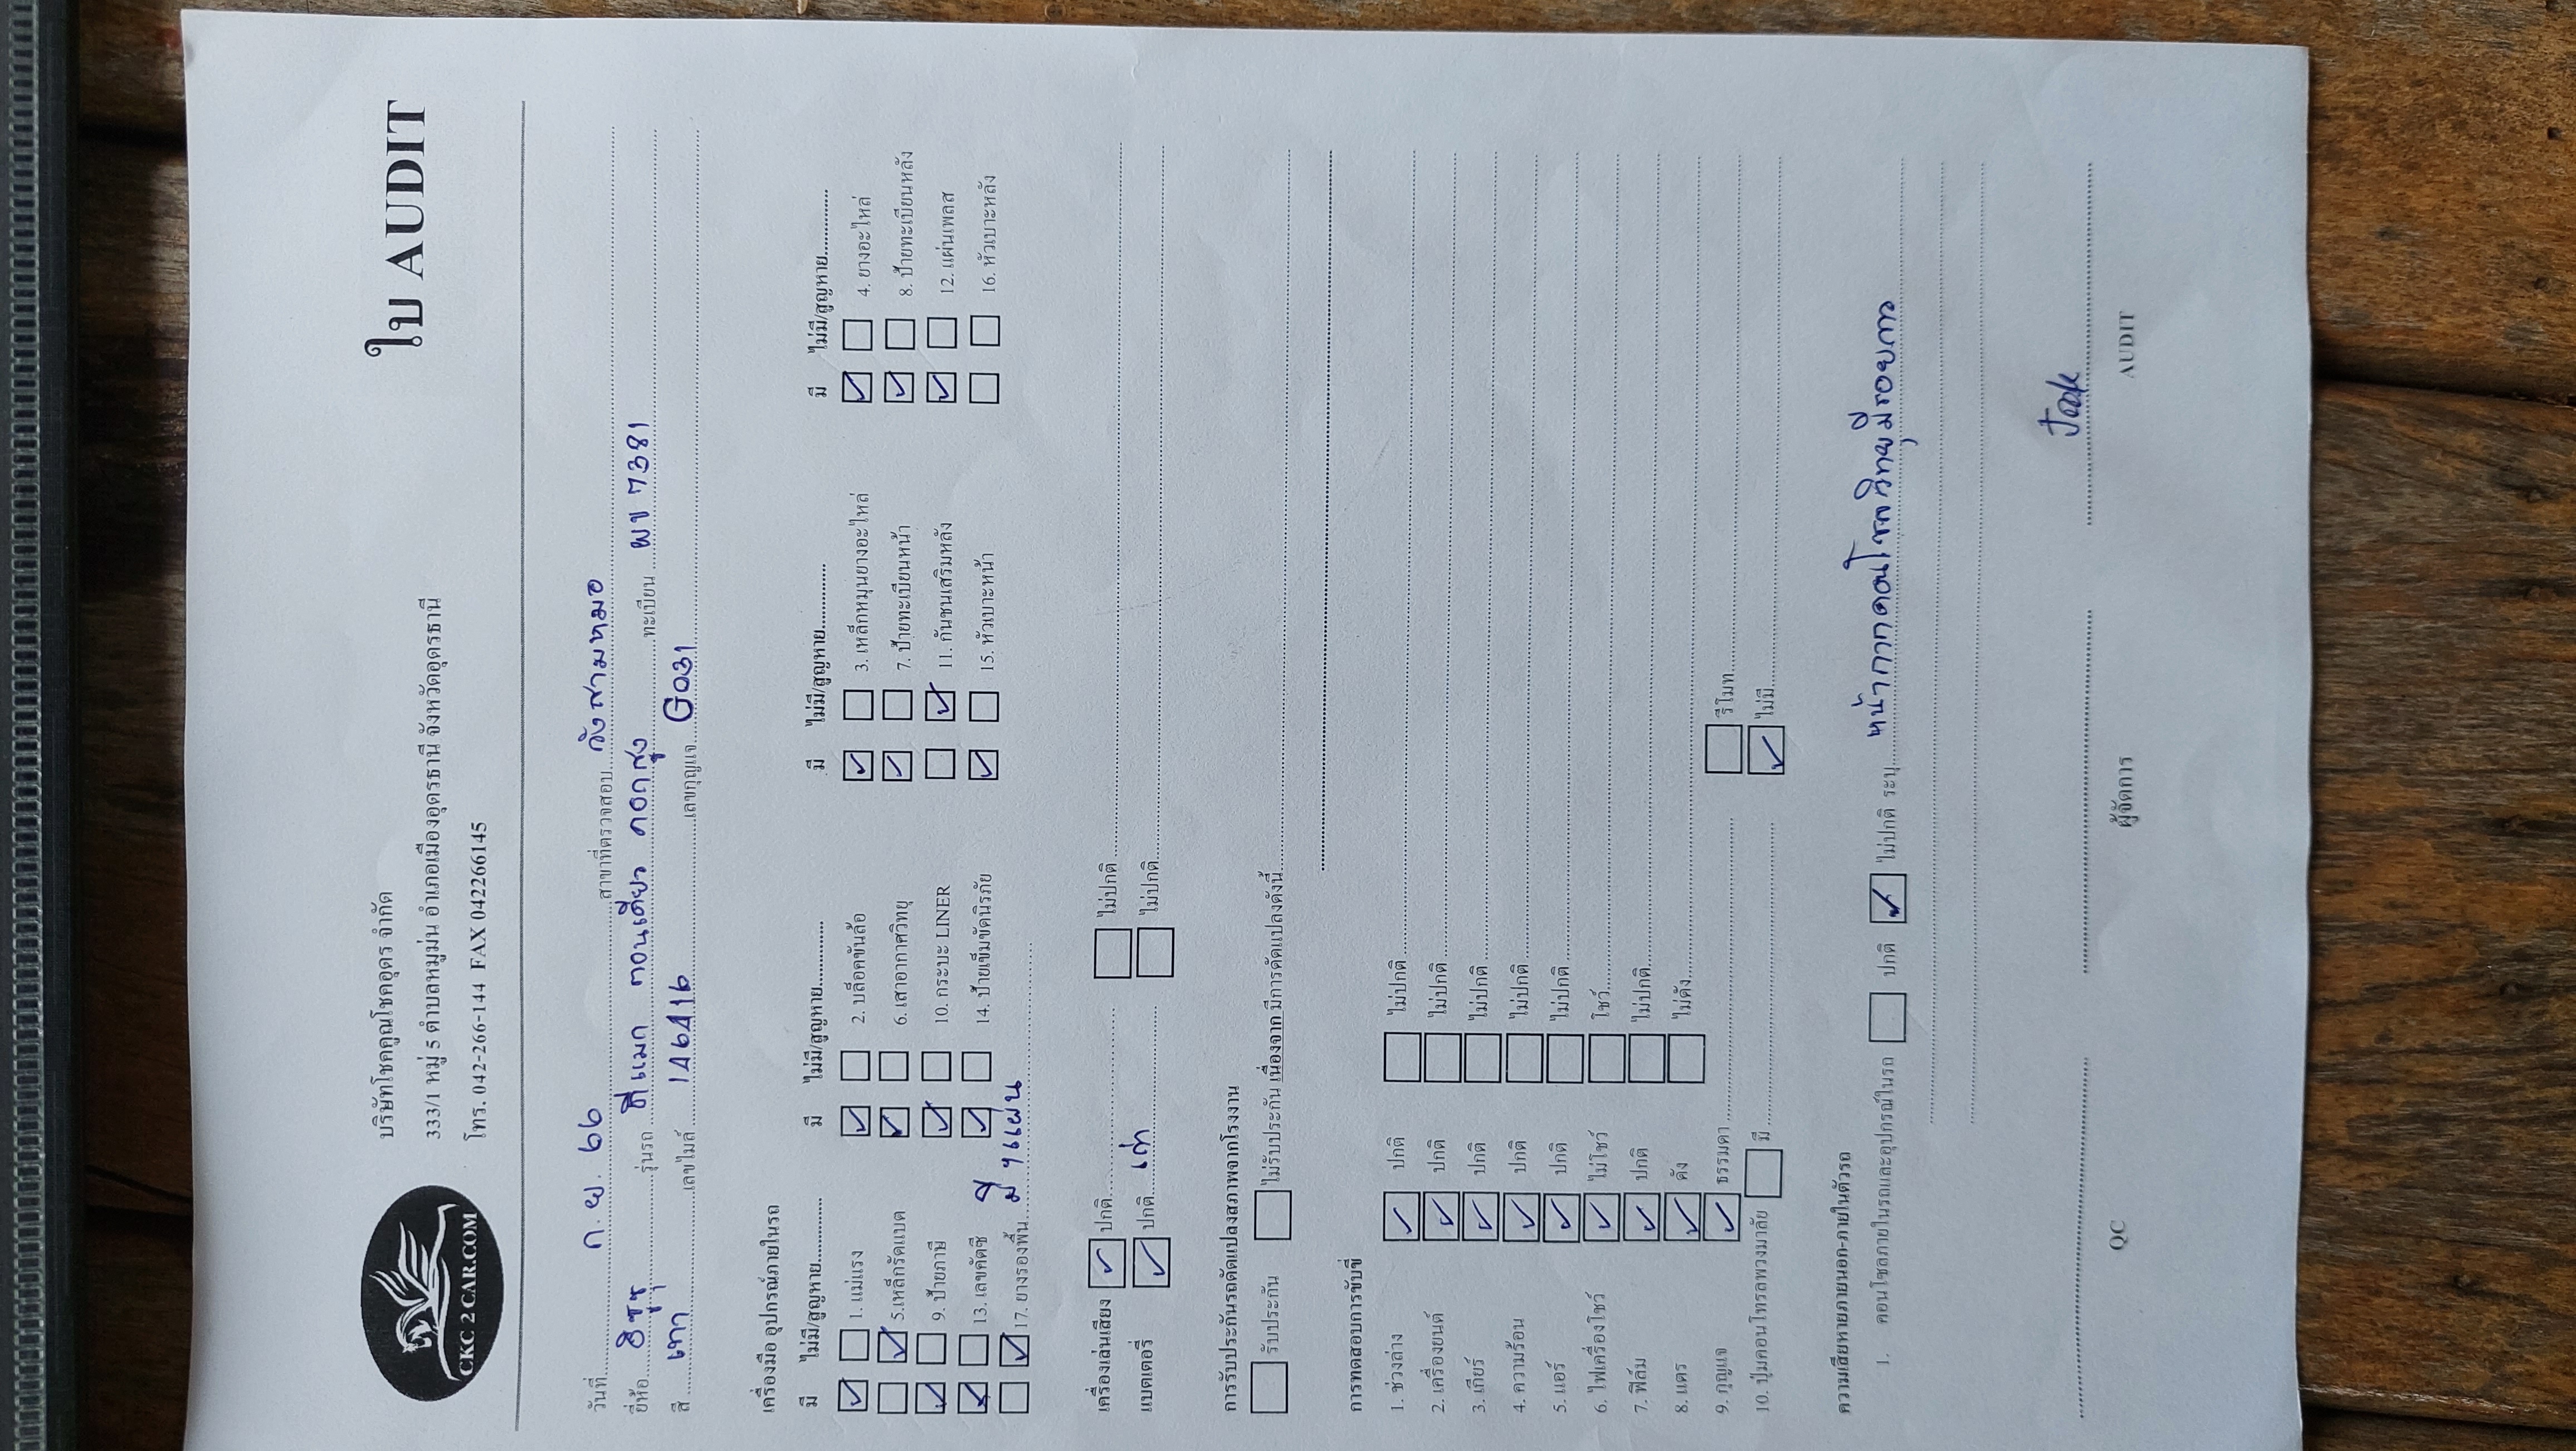 CKC 2 CAR.COM
บริษัทโชคคูณโชคอุดร จำกัด
ใบ AUDIT
333/1 หมู่ 5 ตำบลหมูม่น อำเภอเมืองอุดรธานี จังหวัดอุดรธานี
โทร. 042-266-144 FAX 042266145
วันที่ ก.ย. 66 สาขาที่ตรวจสอบ วังสามหมอ
ยี่ห้อ อีซูซุ รุ่นรถ ดีแมก ตอนเดียว คอกสูง ทะเบียน ผข 7381
สี เทา เลขไมล์ 146416 เลขกุญแจ G031
เครื่องมือ อุปกรณ์ภายในรถ
มี ไม่มี/สูญหาย มี ไม่มี/สูญหาย มี ไม่มี/สูญหาย มี ไม่มี/สูญหาย
1. แม่แรง 2. บล็อคขันล้อ 3. เหล็กหมุนยางอะไหล่ 4. ยางอะไหล่
5.เหล็กรัดแบต 6.เสาอากาศวิทยุ 7. ป้ายทะเบียนหน้า 8. ป้ายทะเบียนหลัง
9. ป้ายภาษี 10. กระบะ LINER 11. กันชนเสริมหลัง 12. แผ่นเพลส
13. เลขคัดซี 14. ป้ายเข็มขัดนิรภัย 15. หัวเบาะหน้า 16. หัวเบาะหลัง
17. ยางรองพื้น มี ๆ แผ่น
เครื่องเล่นเสียง ปกติ ไม่ปกติ
แบตเตอรี่ ปกติ เก่า ไม่ปกติ
การรับประกันรถดัดแปลงสภาพจากโรงงาน
รับประกัน ไม่รับประกัน เนื่องจาก มีการดัดแปลงดังนี้
การทดสอบการขับขี่
1. ช่วงล่าง ปกติ ไม่ปกติ
2. เครื่องยนต์ ปกติ ไม่ปกติ
3. เกียร์ ปกติ ไม่ปกติ
4. ความร้อน ปกติ ไม่ปกติ
5. แอร์ ปกติ ไม่ปกติ
6. ไฟเครื่องโชว์ ไม่โชว์ โชว์
7. ฟิล์ม ปกติ ไม่ปกติ
8. แตร ดัง ไม่ดัง
9. กุญแจ ธรรมดา รีโมท
10. ปุ่มคอนโทรลพวงมาลัย มี ไม่มี
ความเสียหายภายนอก-ภายในตัวรถ
1. คอนโซลภายในรถและอุปกรณ์ในรถ ปกติ ไม่ปกติ ระบุ หน้ากากคอนโซลวิทยุมีรอยกาว
Jook
QC ผู้จัดการ AUDIT